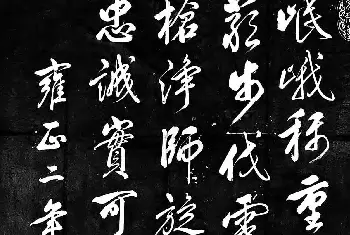 岷峨称重
步伐
槍淨師旋
忠誠實可
雍正二年